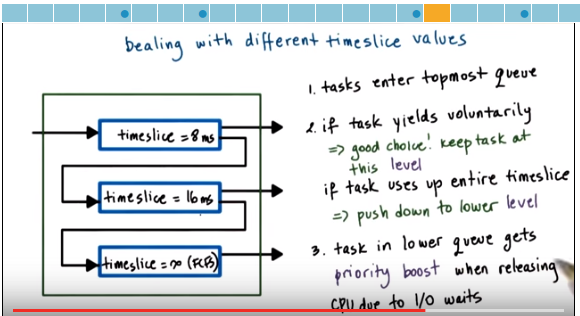 Dealing with different timeslice values
timeslice = 8ms
timeslice = 16ms
timeslice = ∞ (FCFS)
1. tasks enter topmost queue
2. if task yields voluntarily
=> good choice! keep task at
this level
if task uses up entire timeslice
=> push down to lower level
3. task in lower queue gets
priority boost when releasing
CPU due to I/O waits